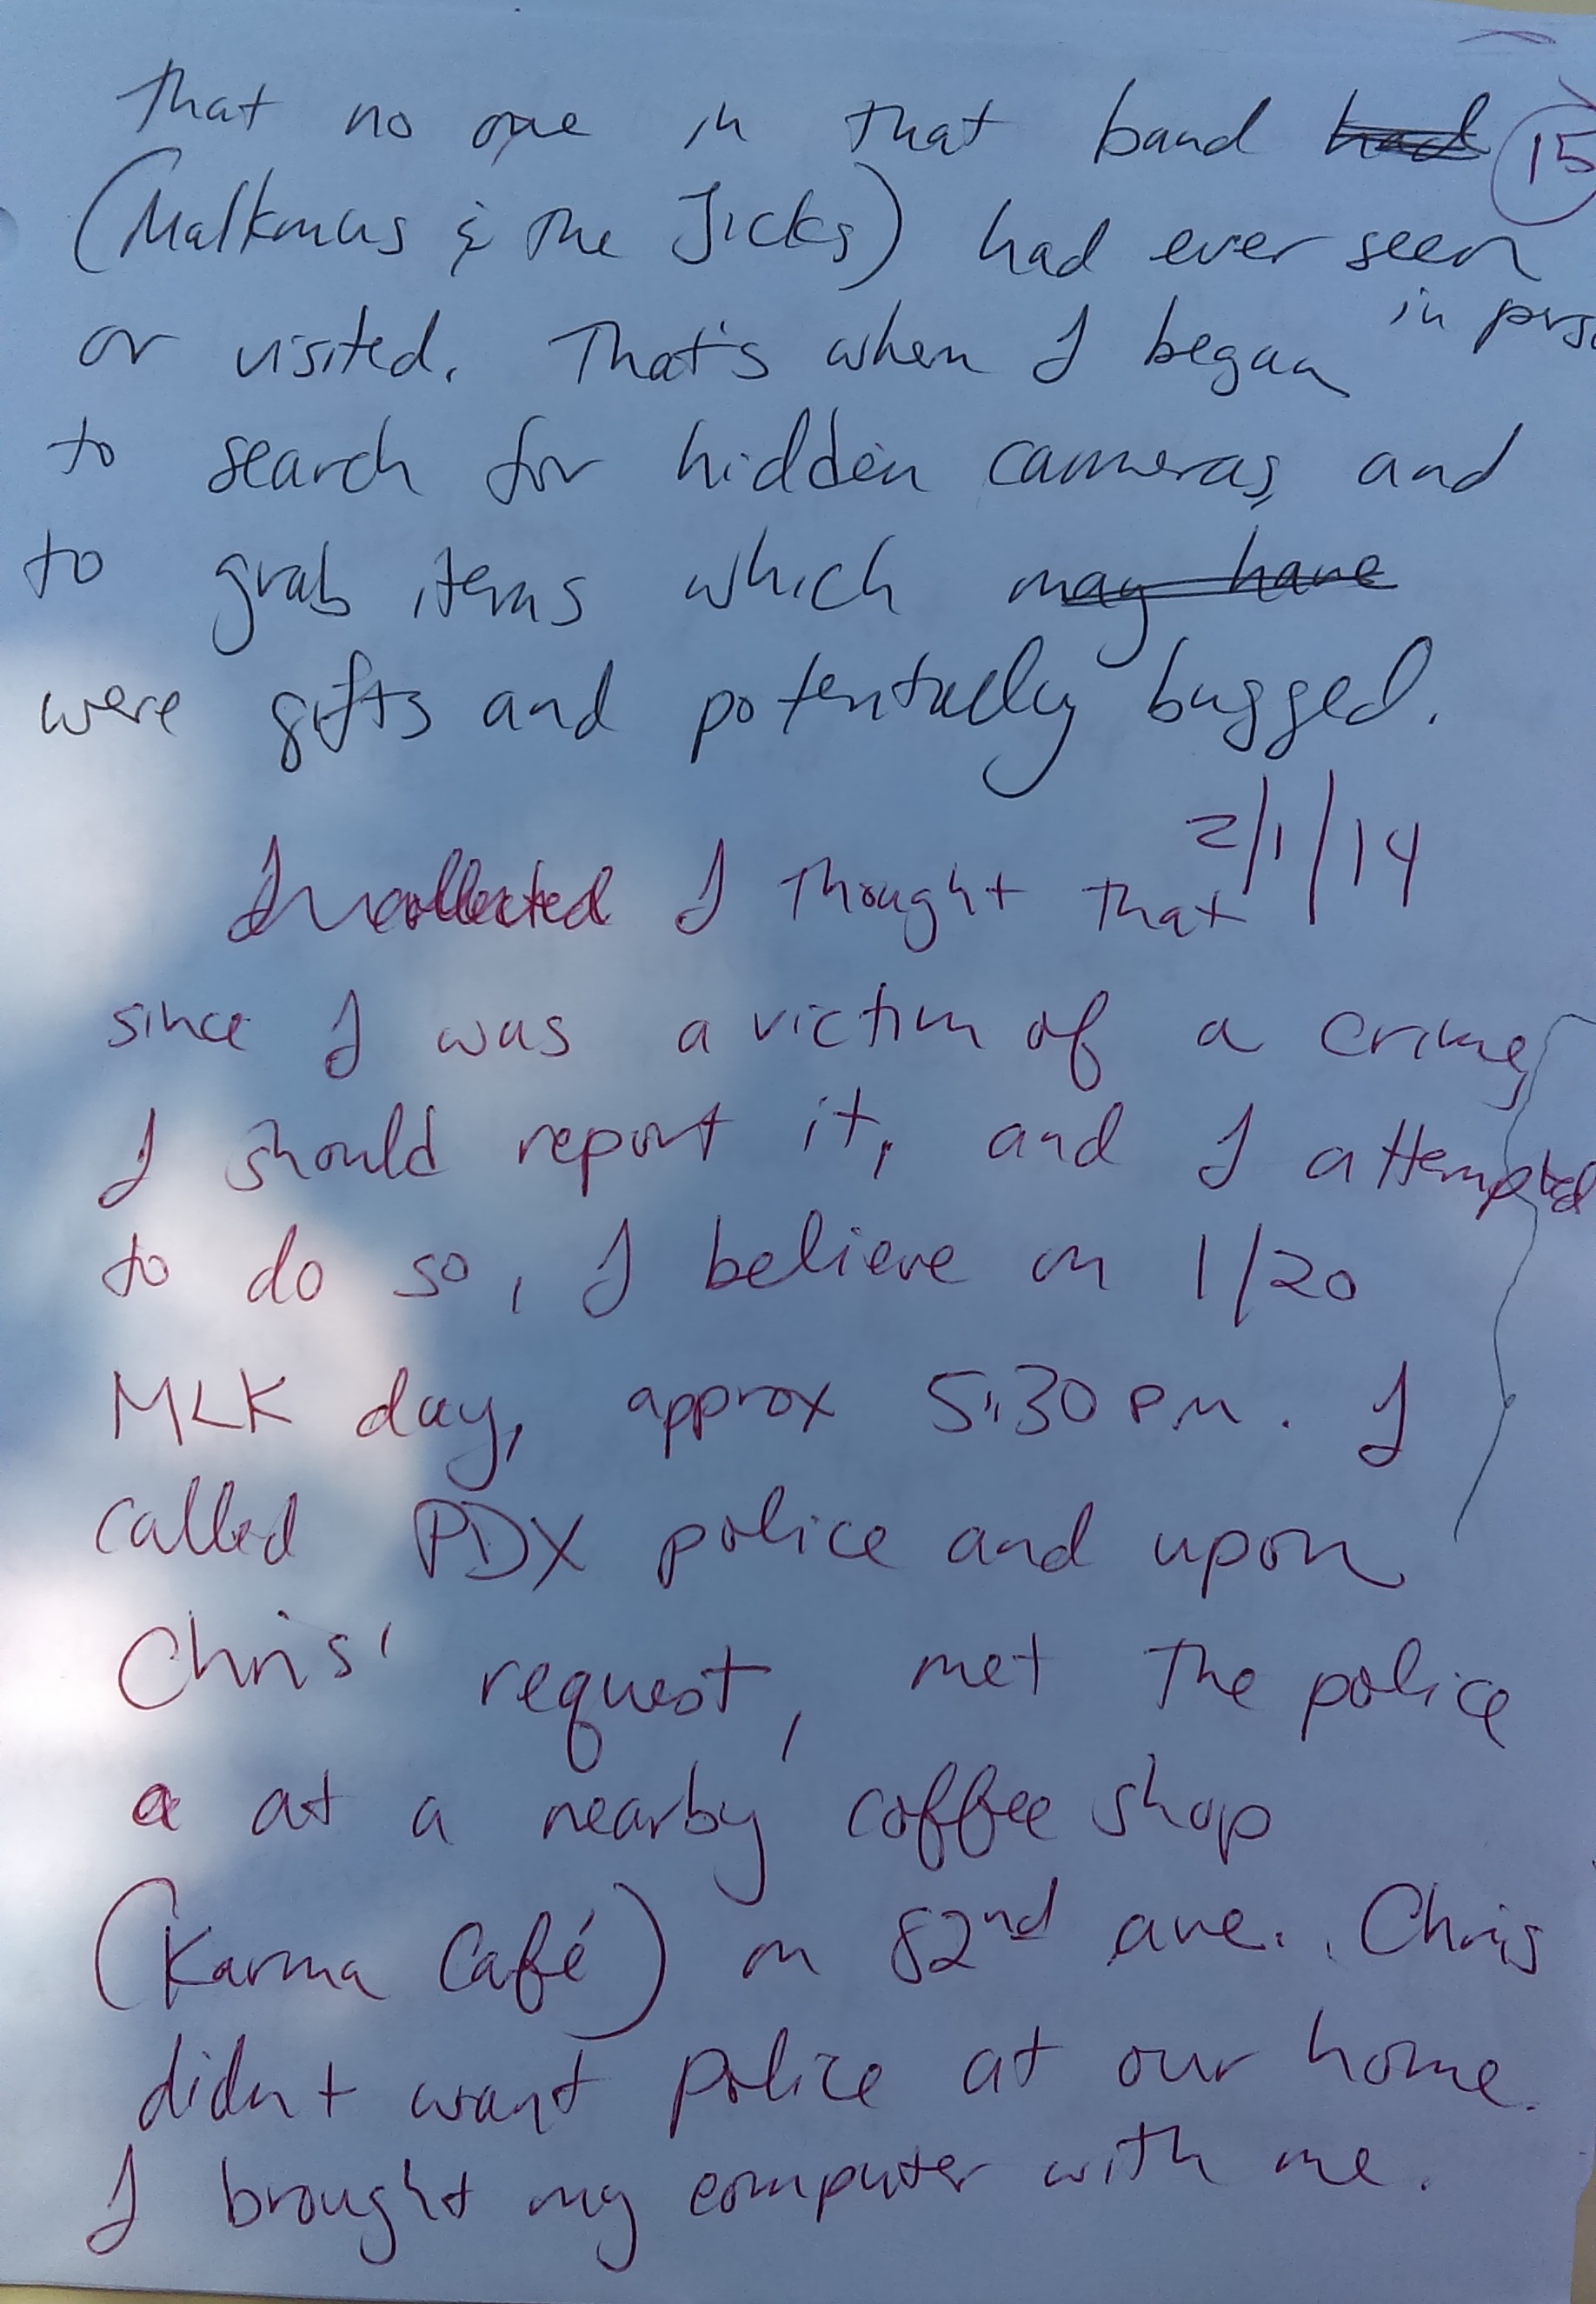 That no one in that band had 15
(Malkmus & the Jicks) had ever seen
or visited. That's when I began in pers
to search for hidden cameras, and
to grab items which may have
were gifts and potentially bugged.
2/1/14
I collected I thought that
since I was a victim of a crime,
I should report it, and I attempted
to do so, I believe on 1/20
MLK day, approx 5:30 PM. I
called PDX police and upon
Chris' request, met the police
a at a nearby coffee shop
(Karma Café) on 82nd ave. Chris
didn't want police at our home.
I brought my computer with me.